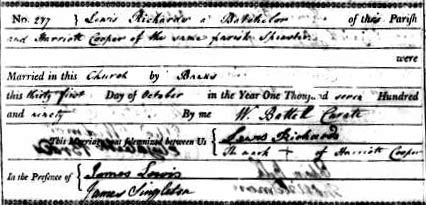 No. 277 } Lewis Richards a Batchelor of this Parish
and Harriott Cooper of the same parish Spinster
were
Married in this Church by Banns
this thirty first Day of October in the Year One Thousand seven Hundred
and ninety By me W. Battell Curate
This Marriage was solemnized between Us { Lewis Richards
The mark + of Harriott Cooper
In the Presence of { James Lewis
James Singleton